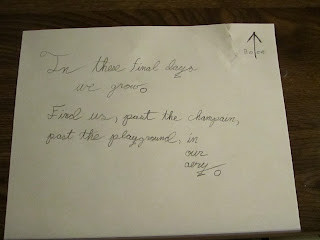 In these final days
we grow.
Find us, past the champain,
past the playground, in
our
aery.